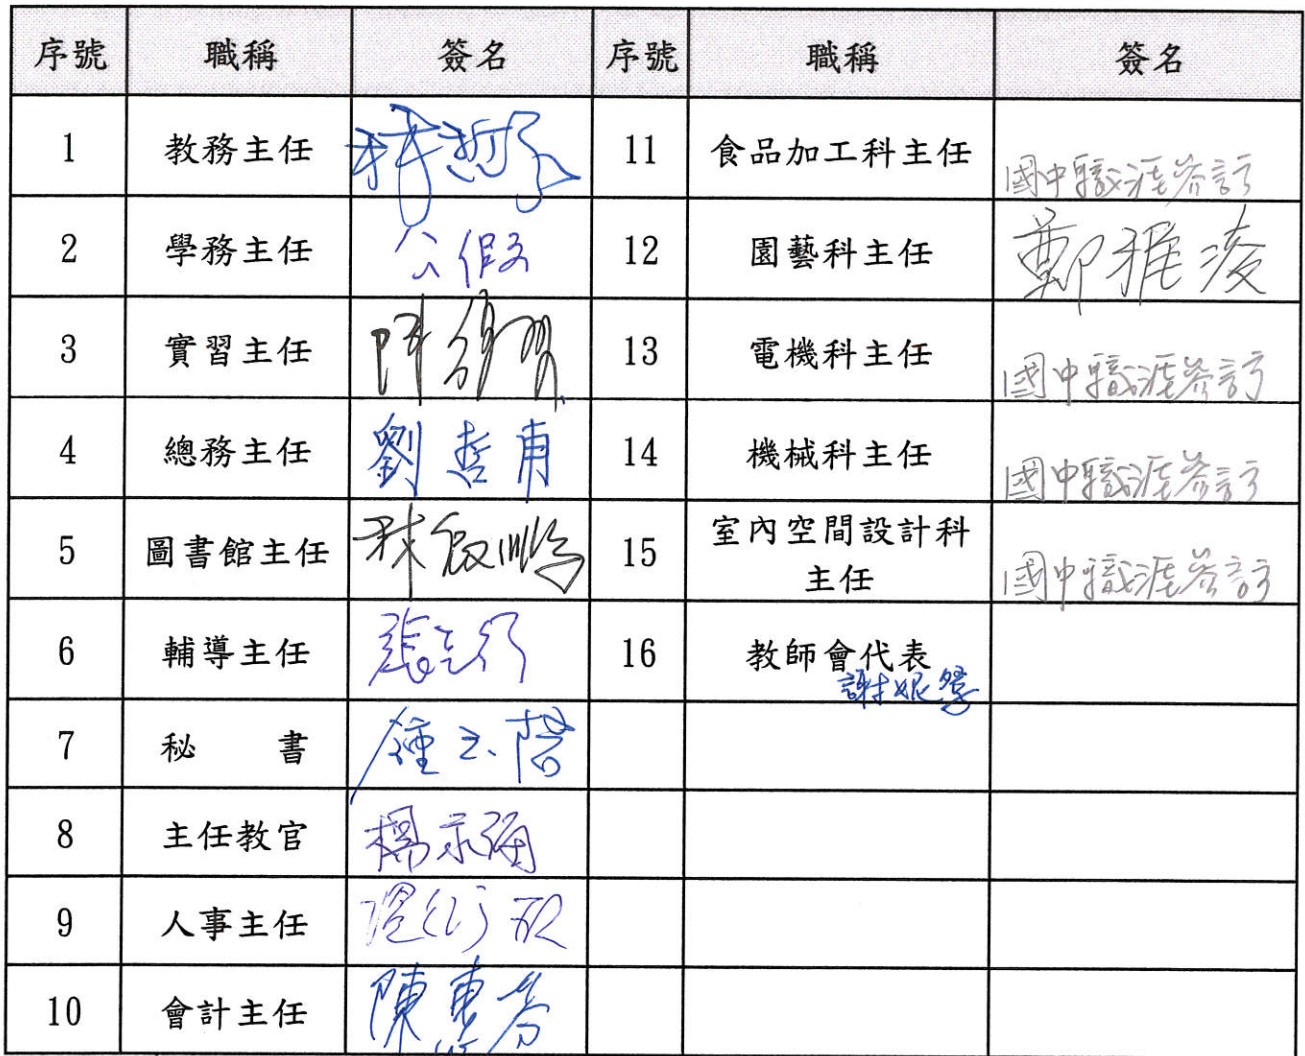 序號 職稱 簽名 序號 職稱 簽名
1 教務主任 11 食品加工科主任 國中職涯參訪
2 學務主任 公假 12 園藝科主任 鄭雅凌
3 實習主任 13 電機科主任 國中職涯參訪
4 總務主任 劉哲甫 14 機械科主任 國中職涯參訪
5 圖書館主任 15 室內空間設計科
主任 國中職涯參訪
6 輔導主任 16 教師會代表
謝妮
7 秘 書 鍾
8 主任教官 楊
9 人事主任
10 會計主任 陳惠芬